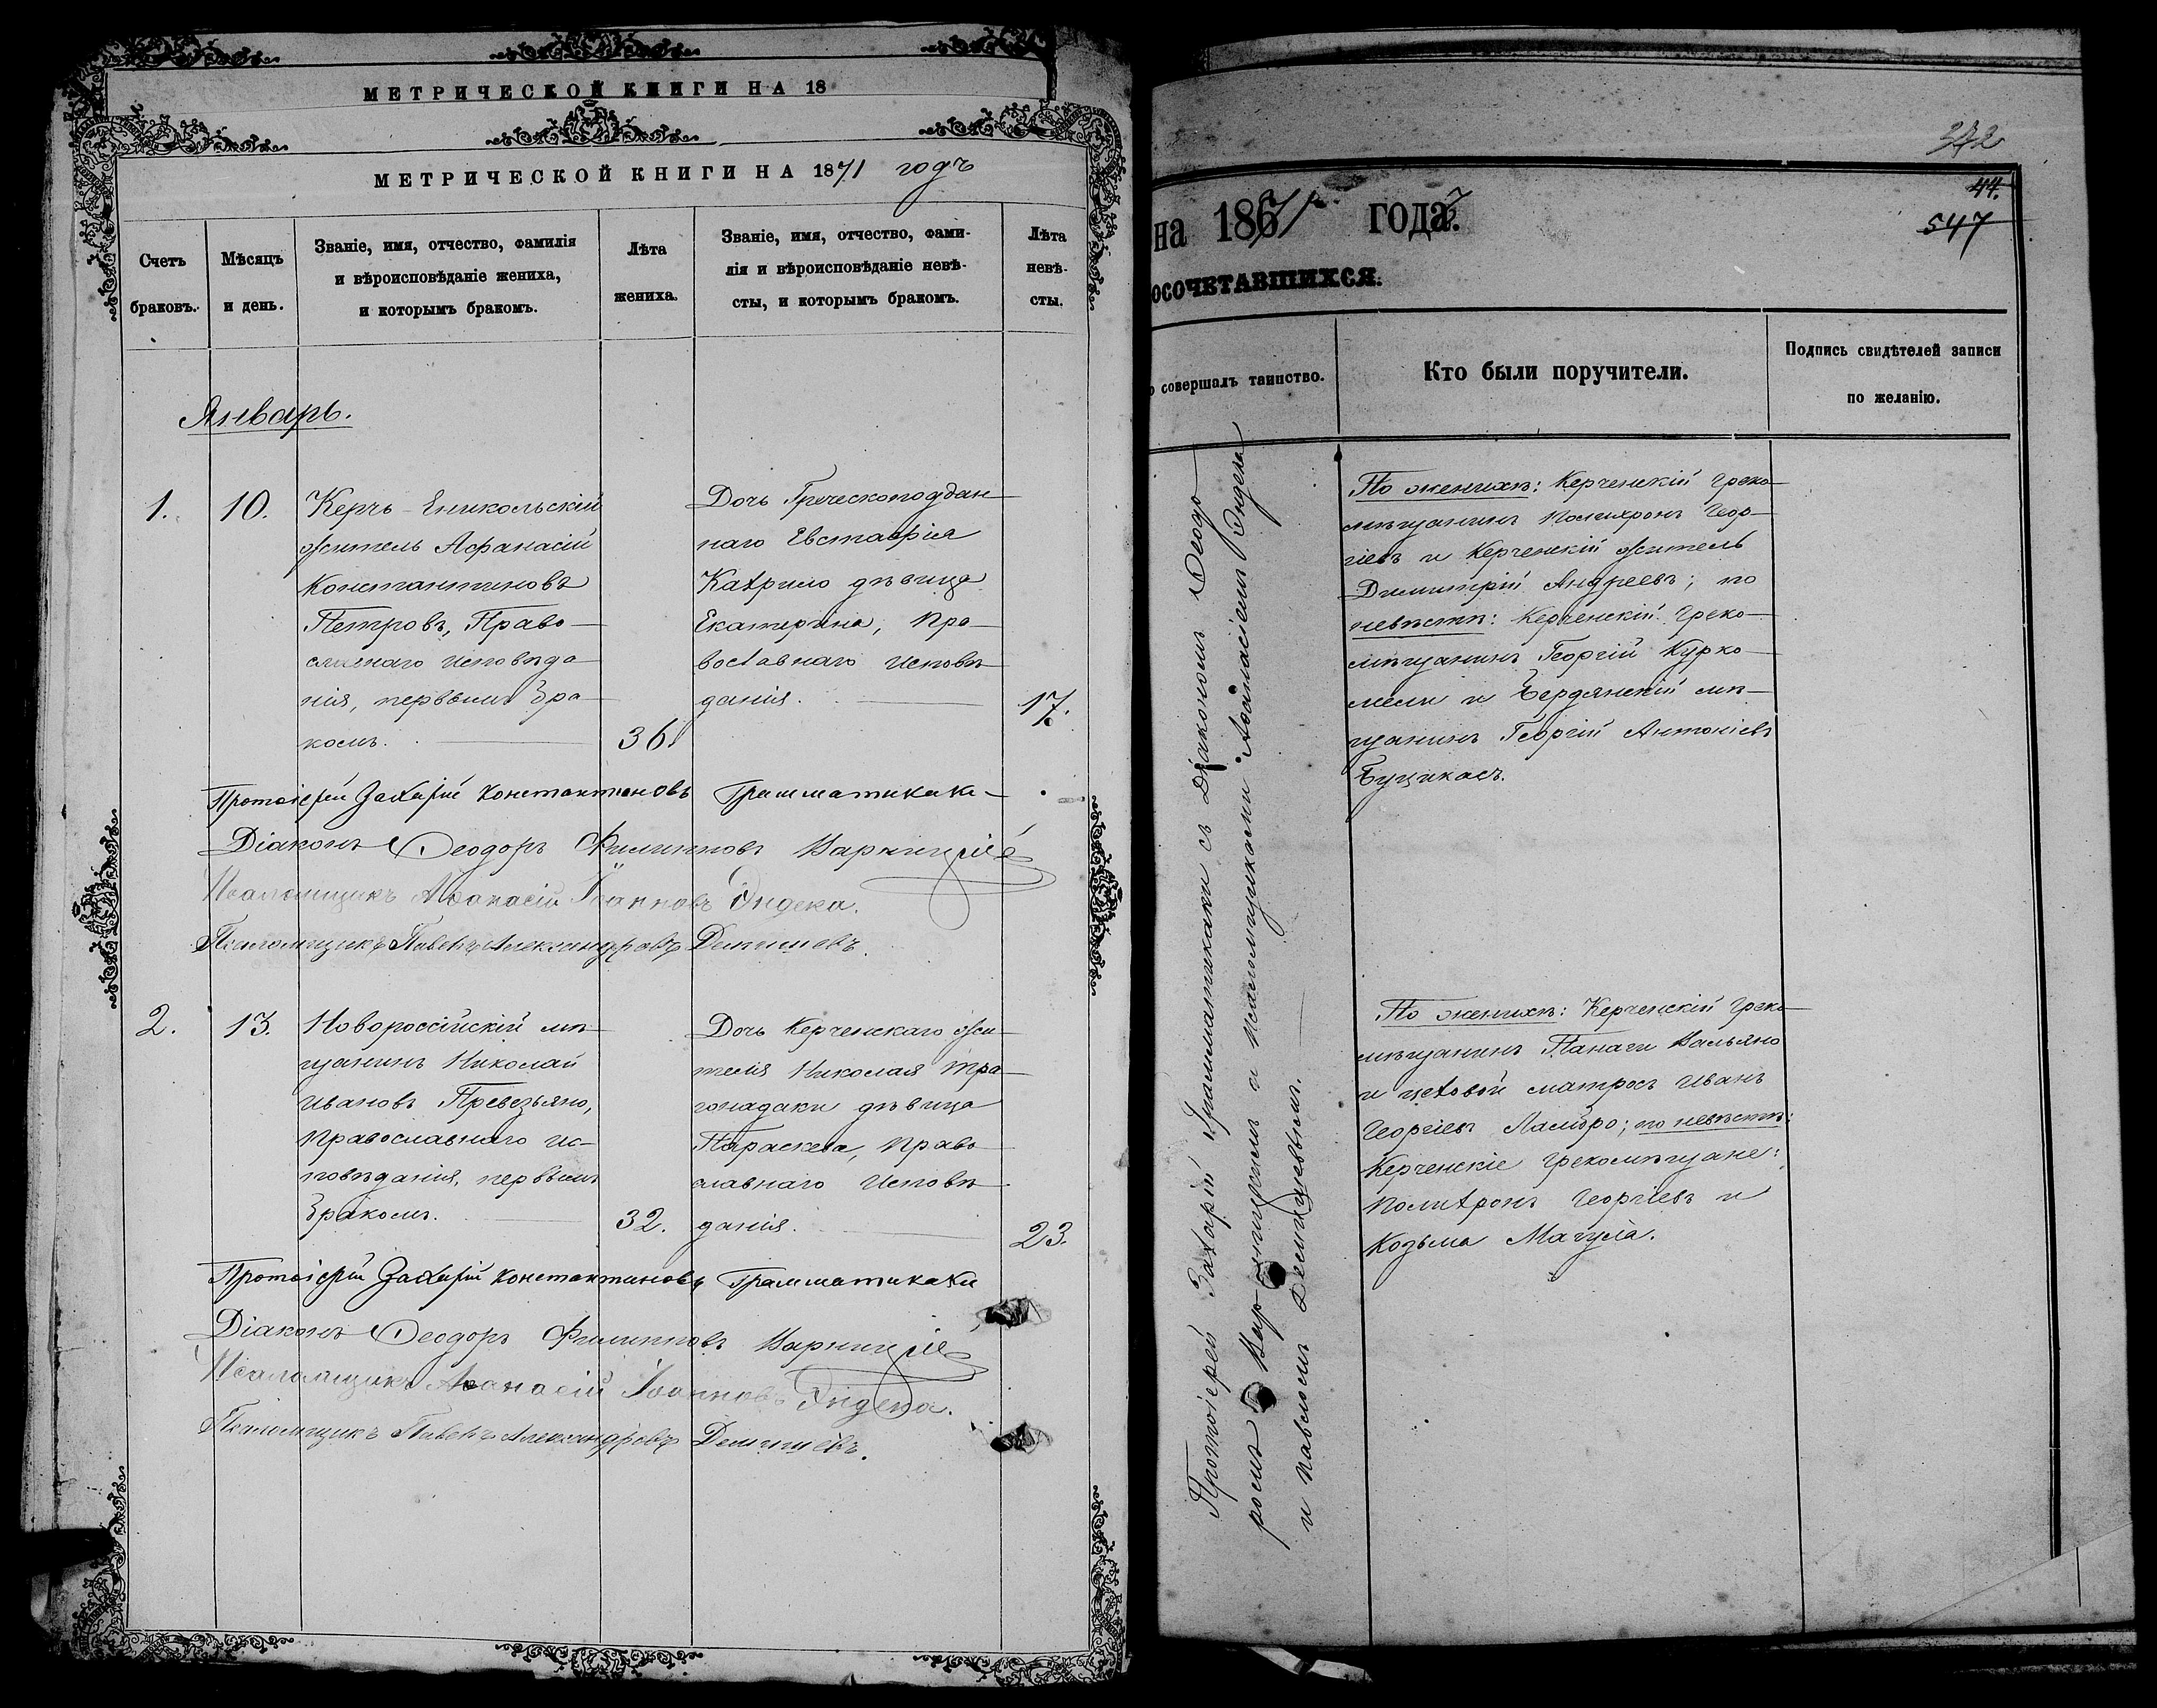 МЕТРИЧЕСКОЙ КНИГИ НА 18
МЕТРИЧЕСКОЙ КНИГИ НА 1871 годъ
Счетъ
браковъ.
Мѣсяцъ
и день.
Званіе, имя, отчество, фамилія
и вѣроисповѣданіе жениха,
и которымъ бракомъ.
Лѣта
жениха.
Званіе, имя, отчество, фами-
лія и вѣроисповѣданіе невѣ-
сты, и которымъ бракомъ.
Лѣта
невѣ-
сты.
Январь.
1.
10.
Керчь-Еникольскій
житель Афанасій
Константиновъ
Петровъ, Право-
славнаго исповѣда-
нія, первымъ бра-
комъ.
36.
Дочь Греческоподдан-
наго Евстафія
Кахримо дѣвица
Екатерина, Пра-
вославнаго исповѣ-
данія.
17.
Протоіерей Захарій Константиновъ Грамматикаки
Діаконъ Ѳеодоръ Филипповъ
Псаломщикъ Аѳанасій Іоанновъ Эндека.
Псаломщикъ Павелъ Александровъ Демишевъ.
2.
13.
Новороссійскій мѣ-
щанинъ Николай
Ивановъ Превезьяно,
Православнаго ис-
повѣданія, первымъ
бракомъ.
32.
Дочь Керченскаго жи-
теля Николая Тра-
гонадаки дѣвица
Параскева, Право-
славнаго исповѣ-
данія.
23.
Протоіерей Захарій Константиновъ Грамматикаки
Діаконъ Ѳеодоръ Филипповъ
Псаломщикъ Аѳанасій Іоанновъ Эндека.
Псаломщикъ Павелъ Александровъ Демишевъ.
44.
547
на 1871 года.
осочетавшихся.
о совершалъ таинство.
Кто были поручители.
Подпись свидѣтелей записи
по желанію.
Протоіерей Захарій Грамматикаки съ Діакономъ Ѳеодо-
ромъ и псаломщиками Аѳанасіемъ Эндека
и Павломъ Демишевымъ.
По женихѣ: Керченскій греко-
мѣщанинъ Полихронъ Геор-
гіевъ и Керченскій житель
Димитрій Андреевъ; по
невѣстѣ: Керченскій греко-
мѣщанинъ Георгій Курко-
мели и Бердянскій мѣ-
щанинъ Георгій Антоніевъ
Буцикасъ.
По женихѣ: Керченскій греко-
мѣщанинъ Панаги Вальяно
и цеховой матросъ Иванъ
Георгіевъ Ламбро; по невѣстѣ:
Керченскіе грекомѣщане:
Полихронъ Георгіевъ и
Козьма Магула.